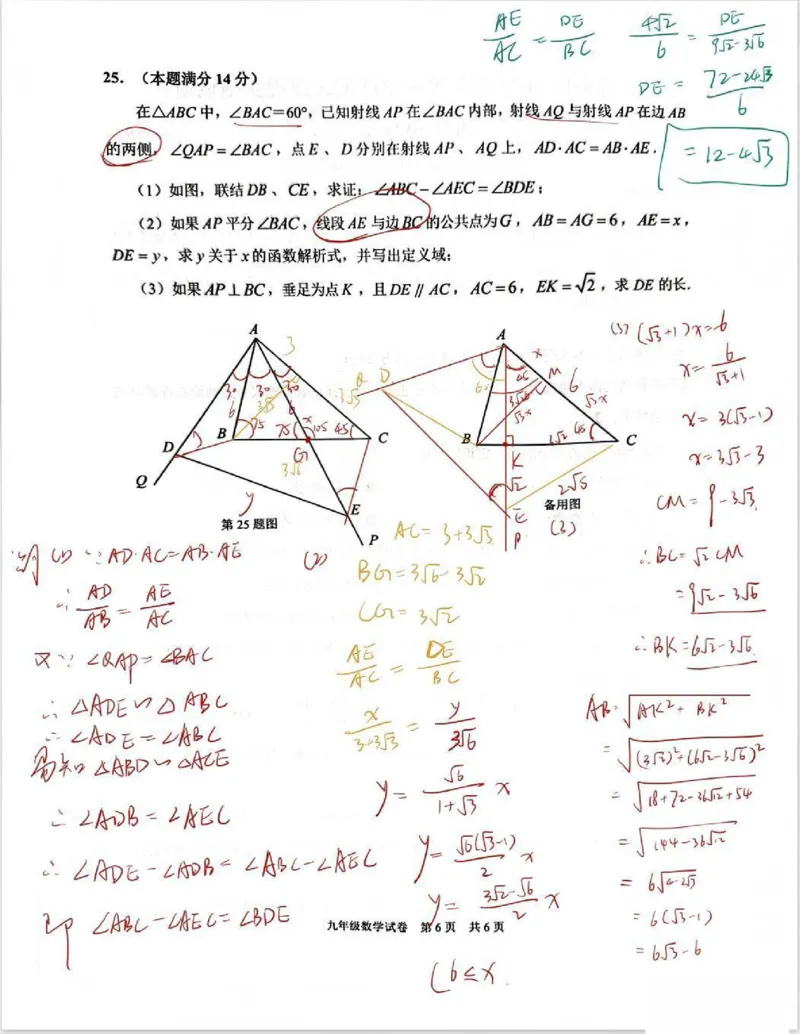 AE/AC = DE/BC
4√2/6 = DE/(9√2-3√6)
DE = (72-24√3)/6
= 12-4√3
25. （本题满分14分）
在△ABC中，∠BAC=60°，已知射线AP在∠BAC内部，射线AQ与射线AP在边AB
的两侧，∠QAP=∠BAC，点E、D分别在射线AP、AQ上，AD·AC=AB·AE．
（1）如图，联结DB、CE，求证：∠ABC-∠AEC=∠BDE；
（2）如果AP平分∠BAC，线段AE与边BC的公共点为G，AB=AG=6，AE=x，
DE=y，求y关于x的函数解析式，并写出定义域；
（3）如果AP⊥BC，垂足为点K，且DE∥AC，AC=6，EK=√2，求DE的长．
A
3
30 30 30
6 3√6 6 x
75 75 105 45
B G C
D
Q
3√6
y
E
P
第25题图
A
Q D
3√3
60 45 x
M
6
3√2 √3x
√3x
B 2√2 45 C
K
√2
2√5
E
P
备用图
(3)
(3) (√3+1)x=6
x= 6/(√3+1)
x=3(√3-1)
x=3√3-3
CM=9-3√3
∴BC=√2CM
=9√2-3√6
∴BK=6√2-3√6
AB=√(AK²+BK²)
=√((3√2)²+(6√2-3√6)²)
=√(18+72-36√12+54)
=√(144-36√12)
=6√(4-2√3)
=6(√3-1)
=6√3-6
(1) ∵AD·AC=AB·AE
∴ AD/AB = AE/AC
又∵ ∠QAP=∠BAC
∴ △ADE∽△ABC
∴ ∠ADE=∠ABC
易知△ABD∽△ACE
∴ ∠ADB=∠AEC
∴ ∠ADE-∠ADB=∠ABC-∠AEC
即 ∠ABC-∠AEC=∠BDE
(2)
AC=3+3√3
BG=3√6-3√2
CG=3√2
AE/AC = DE/BC
x/(3+3√3) = y/(3√6)
y= √6/(1+√3) x
y= √6(√3-1)/2 x
y= (3√2-√6)/2 x
(6≤x
九年级数学试卷 第6页 共6页